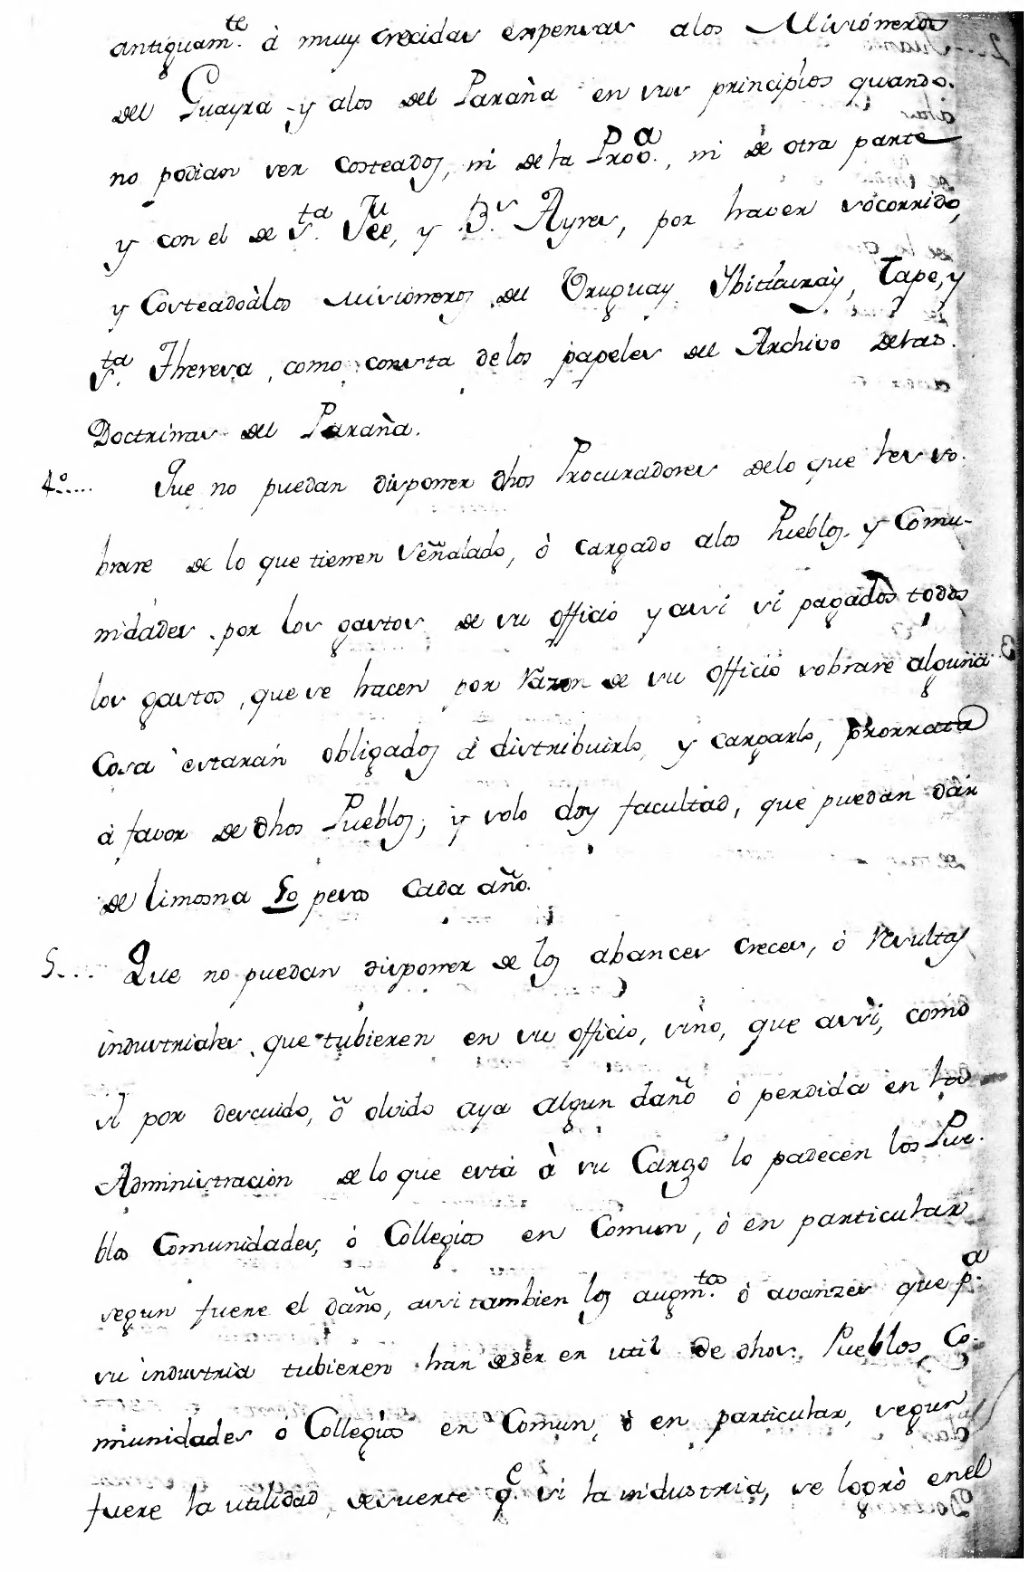 antiguam.te à muy crecidas expensas alos Missióneros
del Guayra y alos del Paraña en sus principios quando
no podian ser costeados, ni de la Proa., ni de otra parte
y con el de S.ta Fee, y B.s Ayres, por haver socorrido,
y Costeadoàlos Missioneros del Uruguay Ybitiaray, Tape, y
S.ta Theresa, como consta de los papeles del Archivo delas
Doctrinas del Paraña.
4.º.... Que no puedan disponer dhos Procuradores delo que les so-
brare de lo que tienen Señalado, ò cargado alos Pueblos y Comu-
nidades por los gastos de su officio y assi si pagados todos
los gastos, que se hacen por razon de su officio sobrare alguna
Cosa estarán obligados à distribuirlo, y cargarlo, prorrata
à favor de dhos Pueblos, y solo doy facultad, que puedan dár
de limosna 50 pesos cada año.
5.... Que no puedan disponer de los abances creces, ò resultas
industriales que tubieren en su officio, sino, que assi, como
si por descuido, ò olvido aya algun daño ò perdida en la
Administración de lo que está à su Cargo lo padecen los Pue-
blos Comunidades, ò Collegios en Comun, ò en particular
segun fuere el daño, assi tambien los augm.tos ò avanzes que p.a
su industria tubieren han deser en util de dhos Pueblos Co-
munidades o Collegios en Comun, ò en particular, segun
fuere la utilidad, desuerte q.e si la industria, se logrò enel